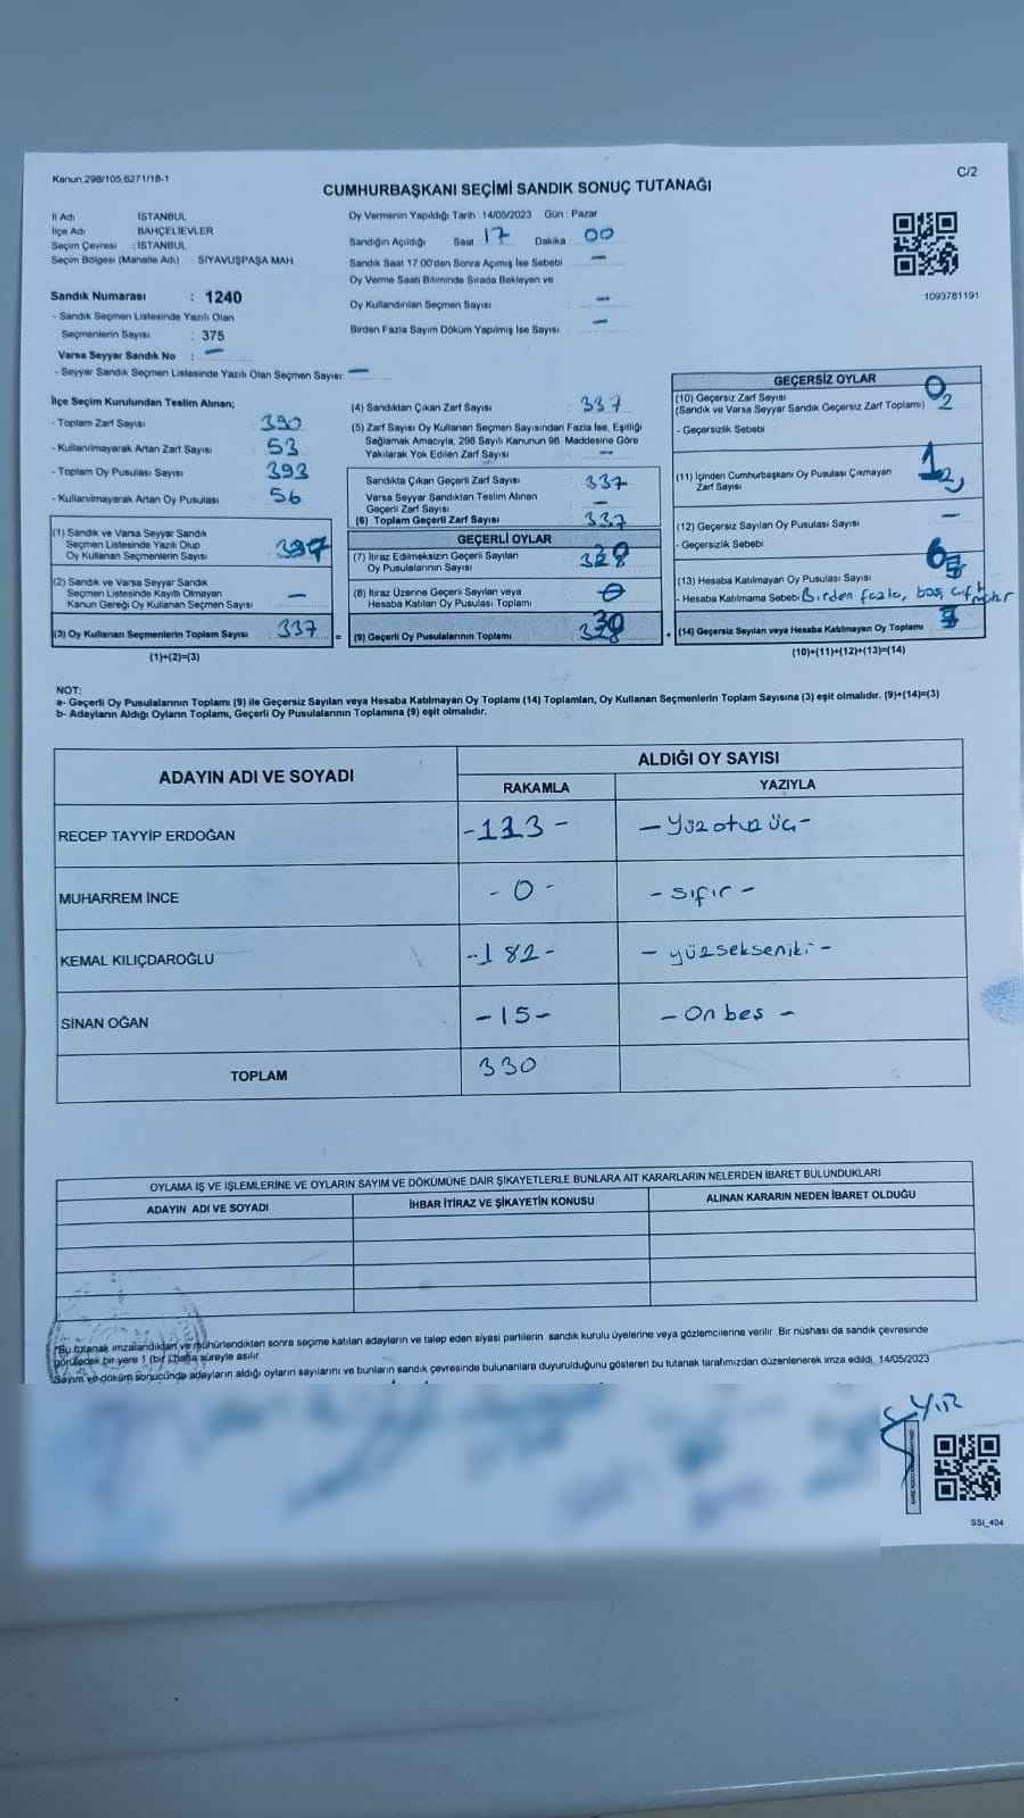 Kanun:298/105,6271/18-1
C/2
CUMHURBAŞKANI SEÇİMİ SANDIK SONUÇ TUTANAĞI
İl Adı : İSTANBUL
İlçe Adı : BAHÇELİEVLER
Seçim Çevresi : İSTANBUL
Seçim Bölgesi (Mahalle Adı) : SİYAVUŞPAŞA MAH.
Sandık Numarası : 1240
- Sandık Seçmen Listesinde Yazılı Olan
Seçmenlerin Sayısı : 375
Varsa Seyyar Sandık No : —
- Seyyar Sandık Seçmen Listesinde Yazılı Olan Seçmen Sayısı: —
Oy Vermenin Yapıldığı Tarih : 14/05/2023 Gün : Pazar
Sandığın Açıldığı Saat : 17 Dakika : 00
Sandık Saat 17:00'den Sonra Açılmış İse Sebebi —
Oy Verme Saati Bitiminde Sırada Bekleyen ve
Oy Kullandırılan Seçmen Sayısı —
Birden Fazla Sayım Döküm Yapılmış İse Sayısı —
1093781191
İlçe Seçim Kurulundan Teslim Alınan;
- Toplam Zarf Sayısı 390
- Kullanılmayarak Artan Zarf Sayısı 53
- Toplam Oy Pusulası Sayısı 393
- Kullanılmayarak Artan Oy Pusulası 56
(1) Sandık ve Varsa Seyyar Sandık
Seçmen Listesinde Yazılı Olup
Oy Kullanan Seçmenlerin Sayısı
(2) Sandık ve Varsa Seyyar Sandık
Seçmen Listesinde Kayıtlı Olmayan
Kanun Gereği Oy Kullanan Seçmen Sayısı —
(3) Oy Kullanan Seçmenlerin Toplam Sayısı 337 =
(1)+(2)=(3)
(4) Sandıktan Çıkan Zarf Sayısı 337
(5) Zarf Sayısı Oy Kullanan Seçmen Sayısından Fazla İse, Eşitliği
Sağlamak Amacıyla, 298 Sayılı Kanunun 98. Maddesine Göre
Yakılarak Yok Edilen Zarf Sayısı —
Sandıkta Çıkan Geçerli Zarf Sayısı 337
Varsa Seyyar Sandıktan Teslim Alınan
Geçerli Zarf Sayısı —
(6) Toplam Geçerli Zarf Sayısı 337
GEÇERLİ OYLAR
(7) İtiraz Edilmeksizin Geçerli Sayılan
Oy Pusulalarının Sayısı 328
(8) İtiraz Üzerine Geçerli Sayılan veya
Hesaba Katılan Oy Pusulası Toplamı 0
(9) Geçerli Oy Pusulalarının Toplamı +
GEÇERSİZ OYLAR
(10) Geçersiz Zarf Sayısı
(Sandık ve Varsa Seyyar Sandık Geçersiz Zarf Toplamı)
- Geçersizlik Sebebi
(11) İçinden Cumhurbaşkanı Oy Pusulası Çıkmayan
Zarf Sayısı
(12) Geçersiz Sayılan Oy Pusulası Sayısı —
- Geçersizlik Sebebi
(13) Hesaba Katılmayan Oy Pusulası Sayısı
- Hesaba Katılmama Sebebi Birden fazla, boş, çift mühr
(14) Geçersiz Sayılan veya Hesaba Katılmayan Oy Toplamı
(10)+(11)+(12)+(13)=(14)
NOT:
a- Geçerli Oy Pusulalarının Toplamı (9) ile Geçersiz Sayılan veya Hesaba Katılmayan Oy Toplamı (14) Toplamları, Oy Kullanan Seçmenlerin Toplam Sayısına (3) eşit olmalıdır. (9)+(14)=(3)
b- Adayların Aldığı Oyların Toplamı, Geçerli Oy Pusulalarının Toplamına (9) eşit olmalıdır.
ADAYIN ADI VE SOYADI
ALDIĞI OY SAYISI
RAKAMLA YAZIYLA
RECEP TAYYİP ERDOĞAN -133- -Yüzotuzüç-
MUHARREM İNCE -0- -sıfır-
KEMAL KILIÇDAROĞLU -182- -yüzsekseniki-
SİNAN OĞAN -15- -Onbeş-
TOPLAM 330
OYLAMA İŞ VE İŞLEMLERİNE VE OYLARIN SAYIM VE DÖKÜMÜNE DAİR ŞİKAYETLERLE BUNLARA AİT KARARLARIN NELERDEN İBARET BULUNDUKLARI
ADAYIN ADI VE SOYADI İHBAR İTİRAZ VE ŞİKAYETİN KONUSU ALINAN KARARIN NEDEN İBARET OLDUĞU
*Bu tutanak imzalandıktan ve mühürlendikten sonra seçime katılan adayların ve talep eden siyasi partilerin sandık kurulu üyelerine veya gözlemcilerine verilir. Bir nüshası da sandık çevresinde
görülecek bir yere 1 (bir) hafta süreyle asılır.
Sayım ve döküm sonucunda adayların aldığı oyların sayılarını ve bunların sandık çevresinde bulunanlara duyurulduğunu gösteren bu tutanak tarafımızdan düzenlenerek imza edildi. 14/05/2023
SSI_404